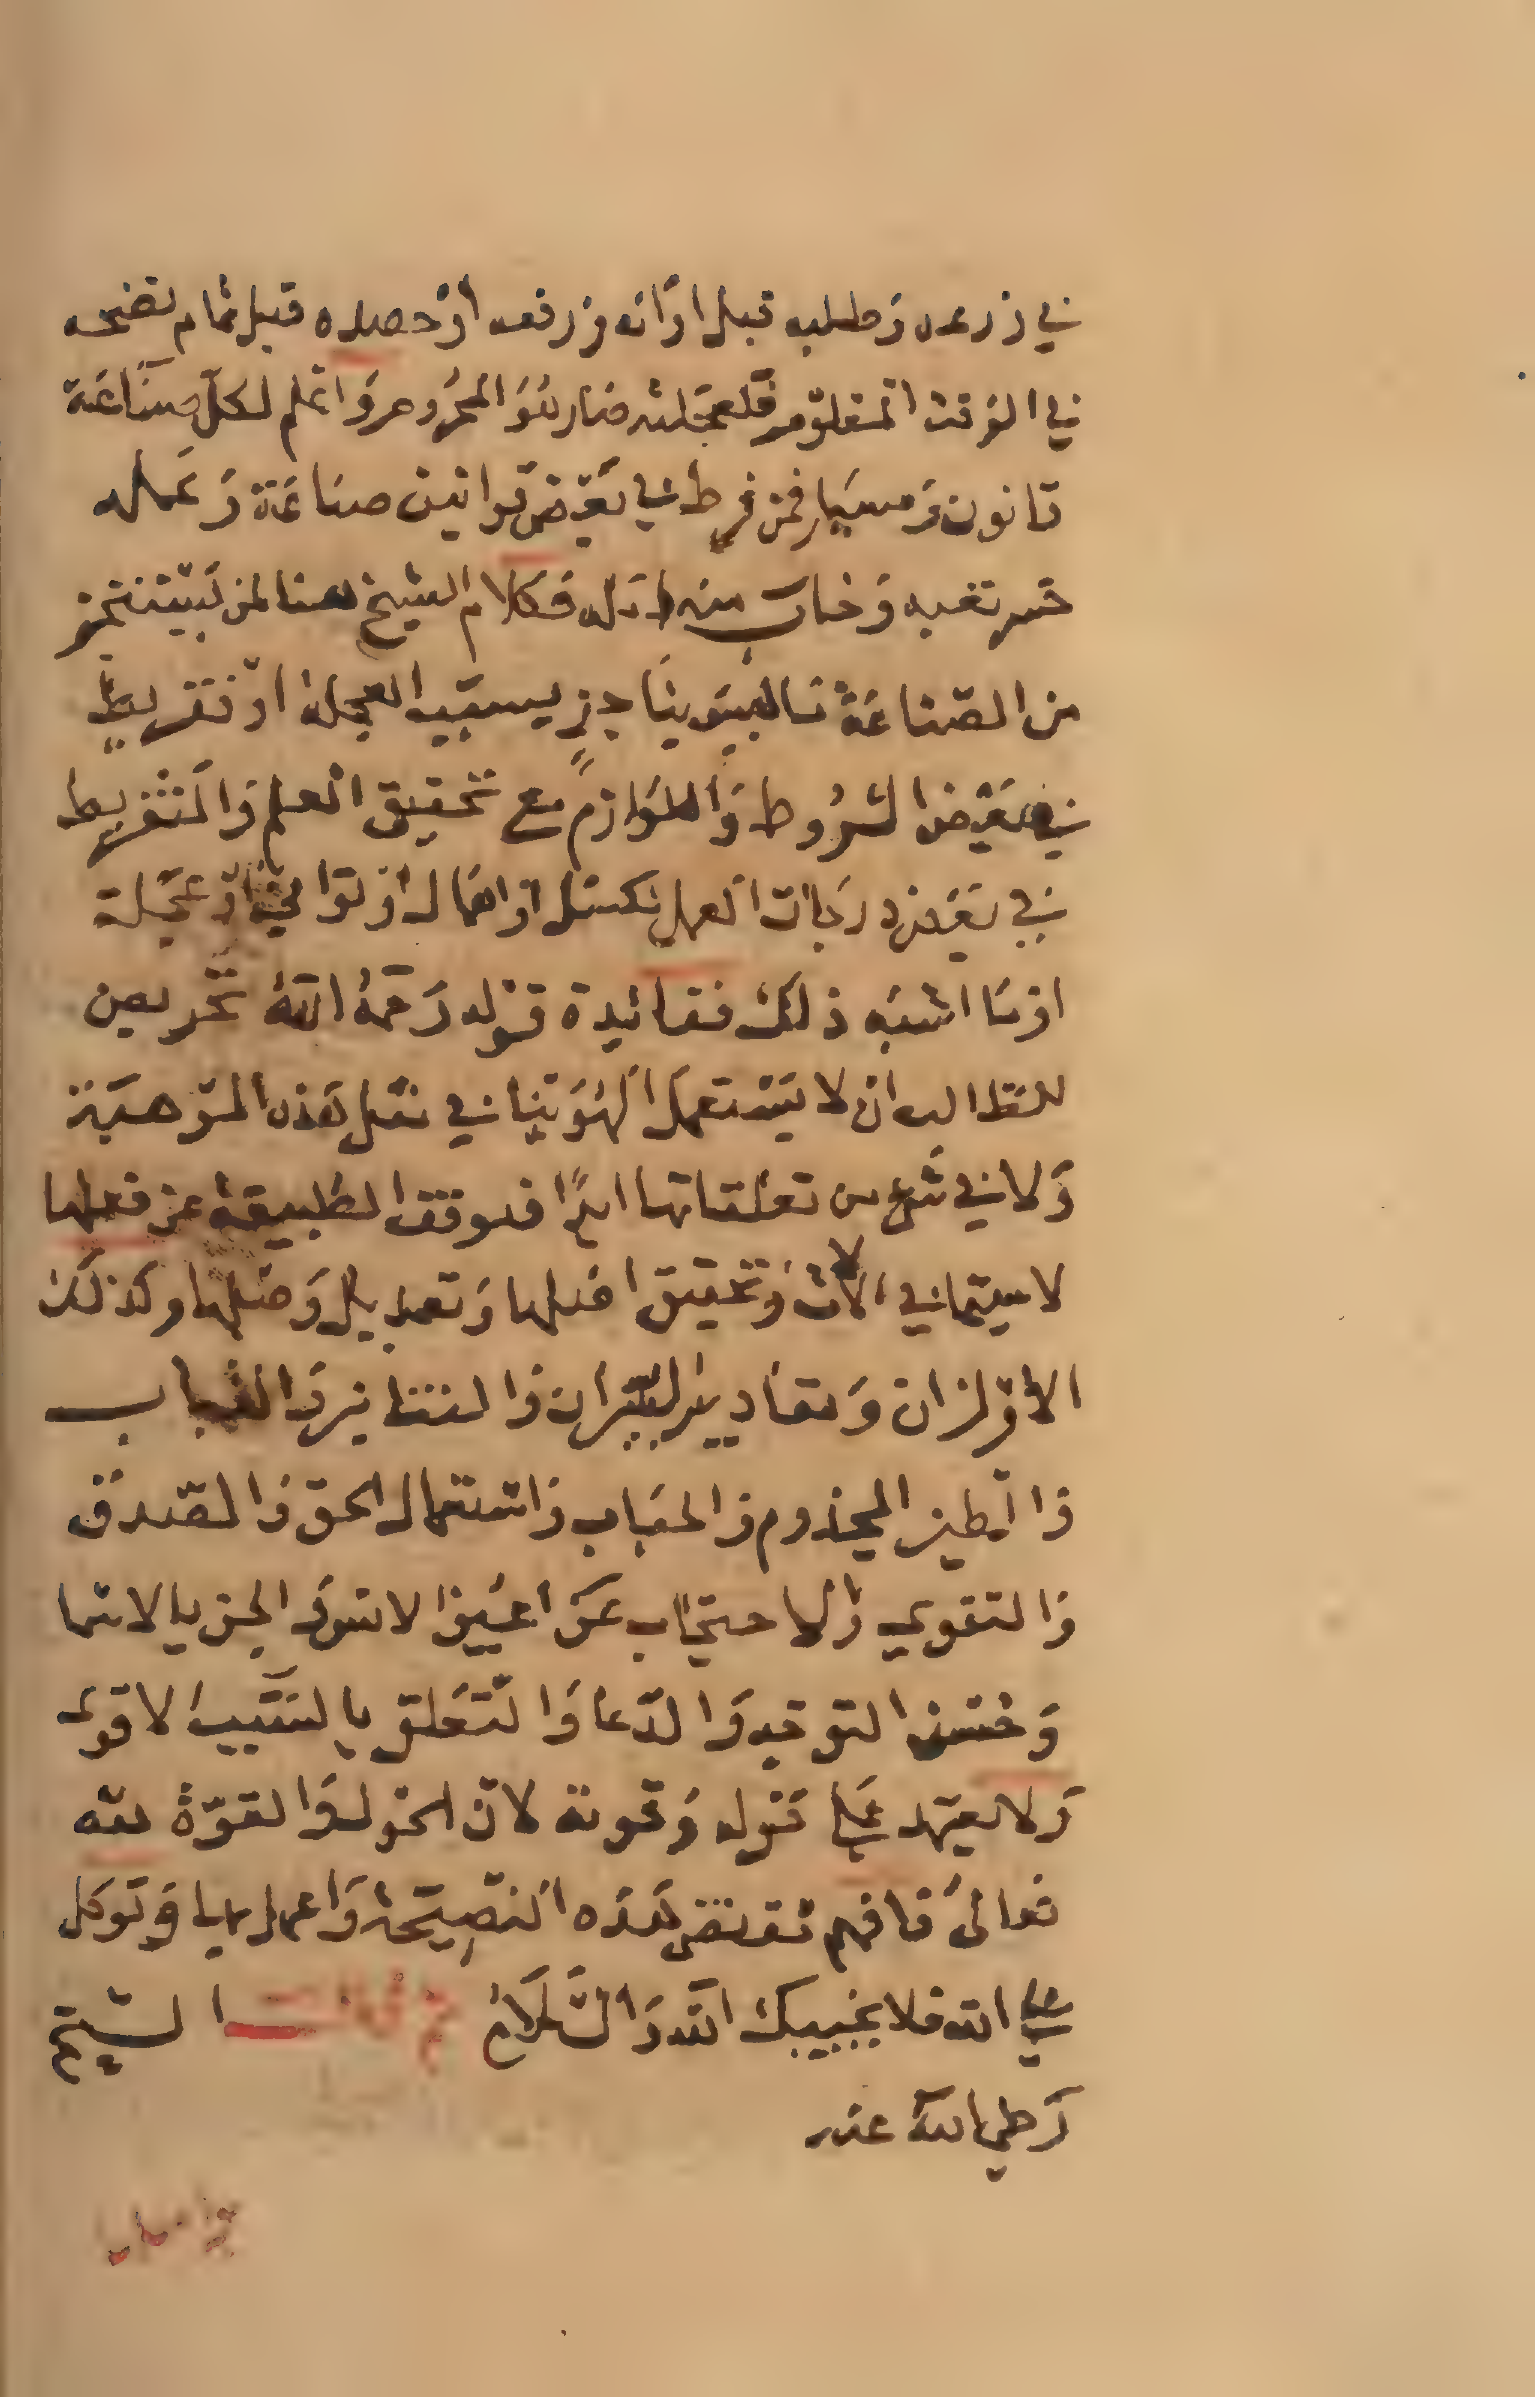 في زرعه وطلبه قبل اوانه وزرفعه أو حصده قبل تمام نضجه
في الوقت المعلوم فلعجلته صار هو المحروم واعلم لكل صناعة
قانون ومسيار فمن فرط في بعض قوانين صناعة وعمله
خسر تعبه وخاب منه امله فكلام الشيخ هنا لمن
من الصناعة بسبب العجلة او تفريط
في بعض الشروط واللوازم مع تحقيق العلم والتفريط
في بعض درجات العمل بكسل او اهمال او تواني او عجلة
او ما اشبه ذلك ففائدة قوله رحمه الله تحريص
للطالب ان لا يستعمل الهوينا في مثل هذه الموهبة
ولا في شيء من تعلقاتها ابدا فلوقف الطبيعة عن فعلها
لا سيما في الالات وتحقيق اصلها وتعديل وصلها وكذلك
الاوزان ومقادير النيران والتنانير والقباب
والطين المخدوم والحباب واستعمال الحق والصدق
والتقوي والاحتجاب عن اعين الاسود الجن بالاسما
وحسن التوحيد والدعا والتعلق بالسبب الاقوى
ولا يعتمد على حوله وقوته لان الحول والقوة لله
تعالى فافهم تقتضي هذه النصيحة واعمل بها وتوكل
على الله فلا يخيبك الله والسلام ثم قال الشيخ
رضي الله عنه